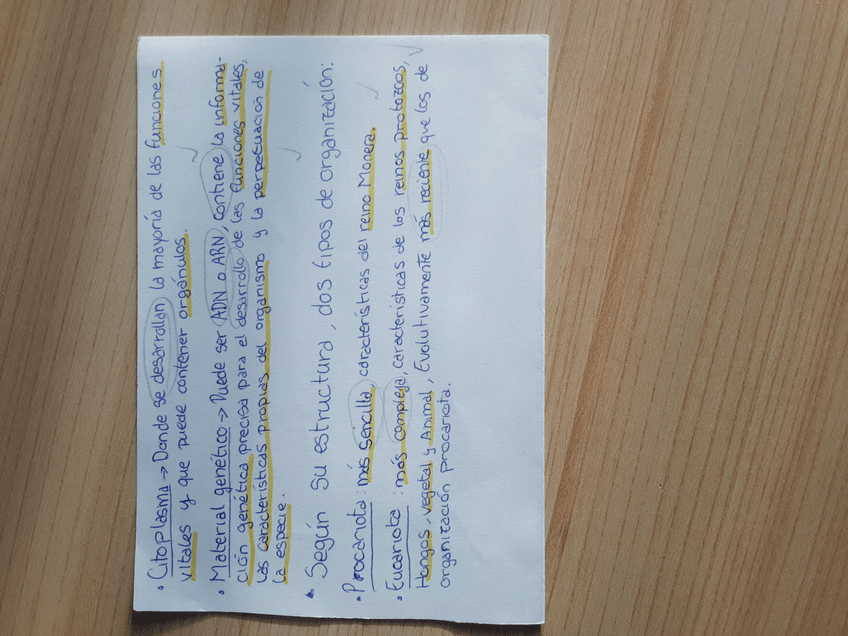 • Citoplasma → Donde se desarrollan la mayoría de las funciones
vitales y que puede contener orgánulos.
• Material genético → Puede ser ADN o ARN, contiene la informa-
ción genética precisa para el desarrollo de las funciones vitales,
las características propias del organismo y la perpetuación de
la especie.
• Según su estructura, dos tipos de organización:
• Procariota: más sencilla, características del reino Monera.
• Eucariota: más compleja, características de los reinos protozoos,
Hongos, vegetal y Animal, Evolutivamente más reciente que los de
organización procariota.